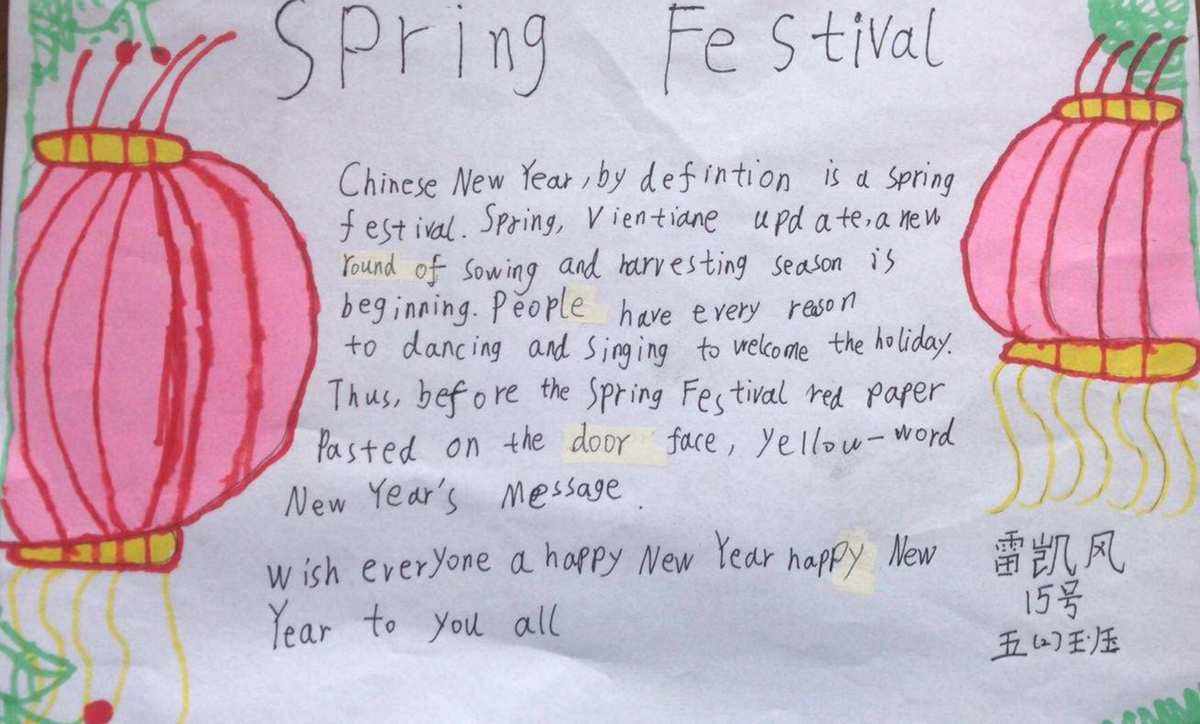 Spring Festival
Chinese New Year, by defintion is a spring
festival. Spring, Vientiane update, a new
round of sowing and harvesting season is
beginning. People have every reason
to dancing and singing to welcome the holiday.
Thus, before the Spring Festival red paper
Pasted on the door face, yellow-word
New Year's Message.
Wish everyone a happy New Year happy New
Year to you all
雷凯风
15号
五(2)